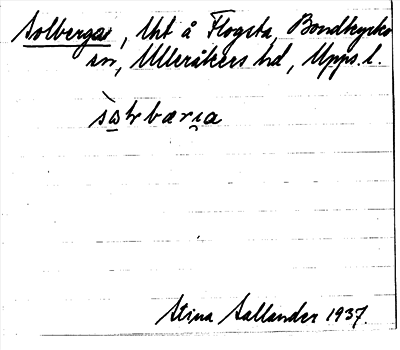 Solberga, Uht å Flogsta, Bondkyrko
sn, Ulleråkers hd, Upps. l.
Stina Sallander 1937.